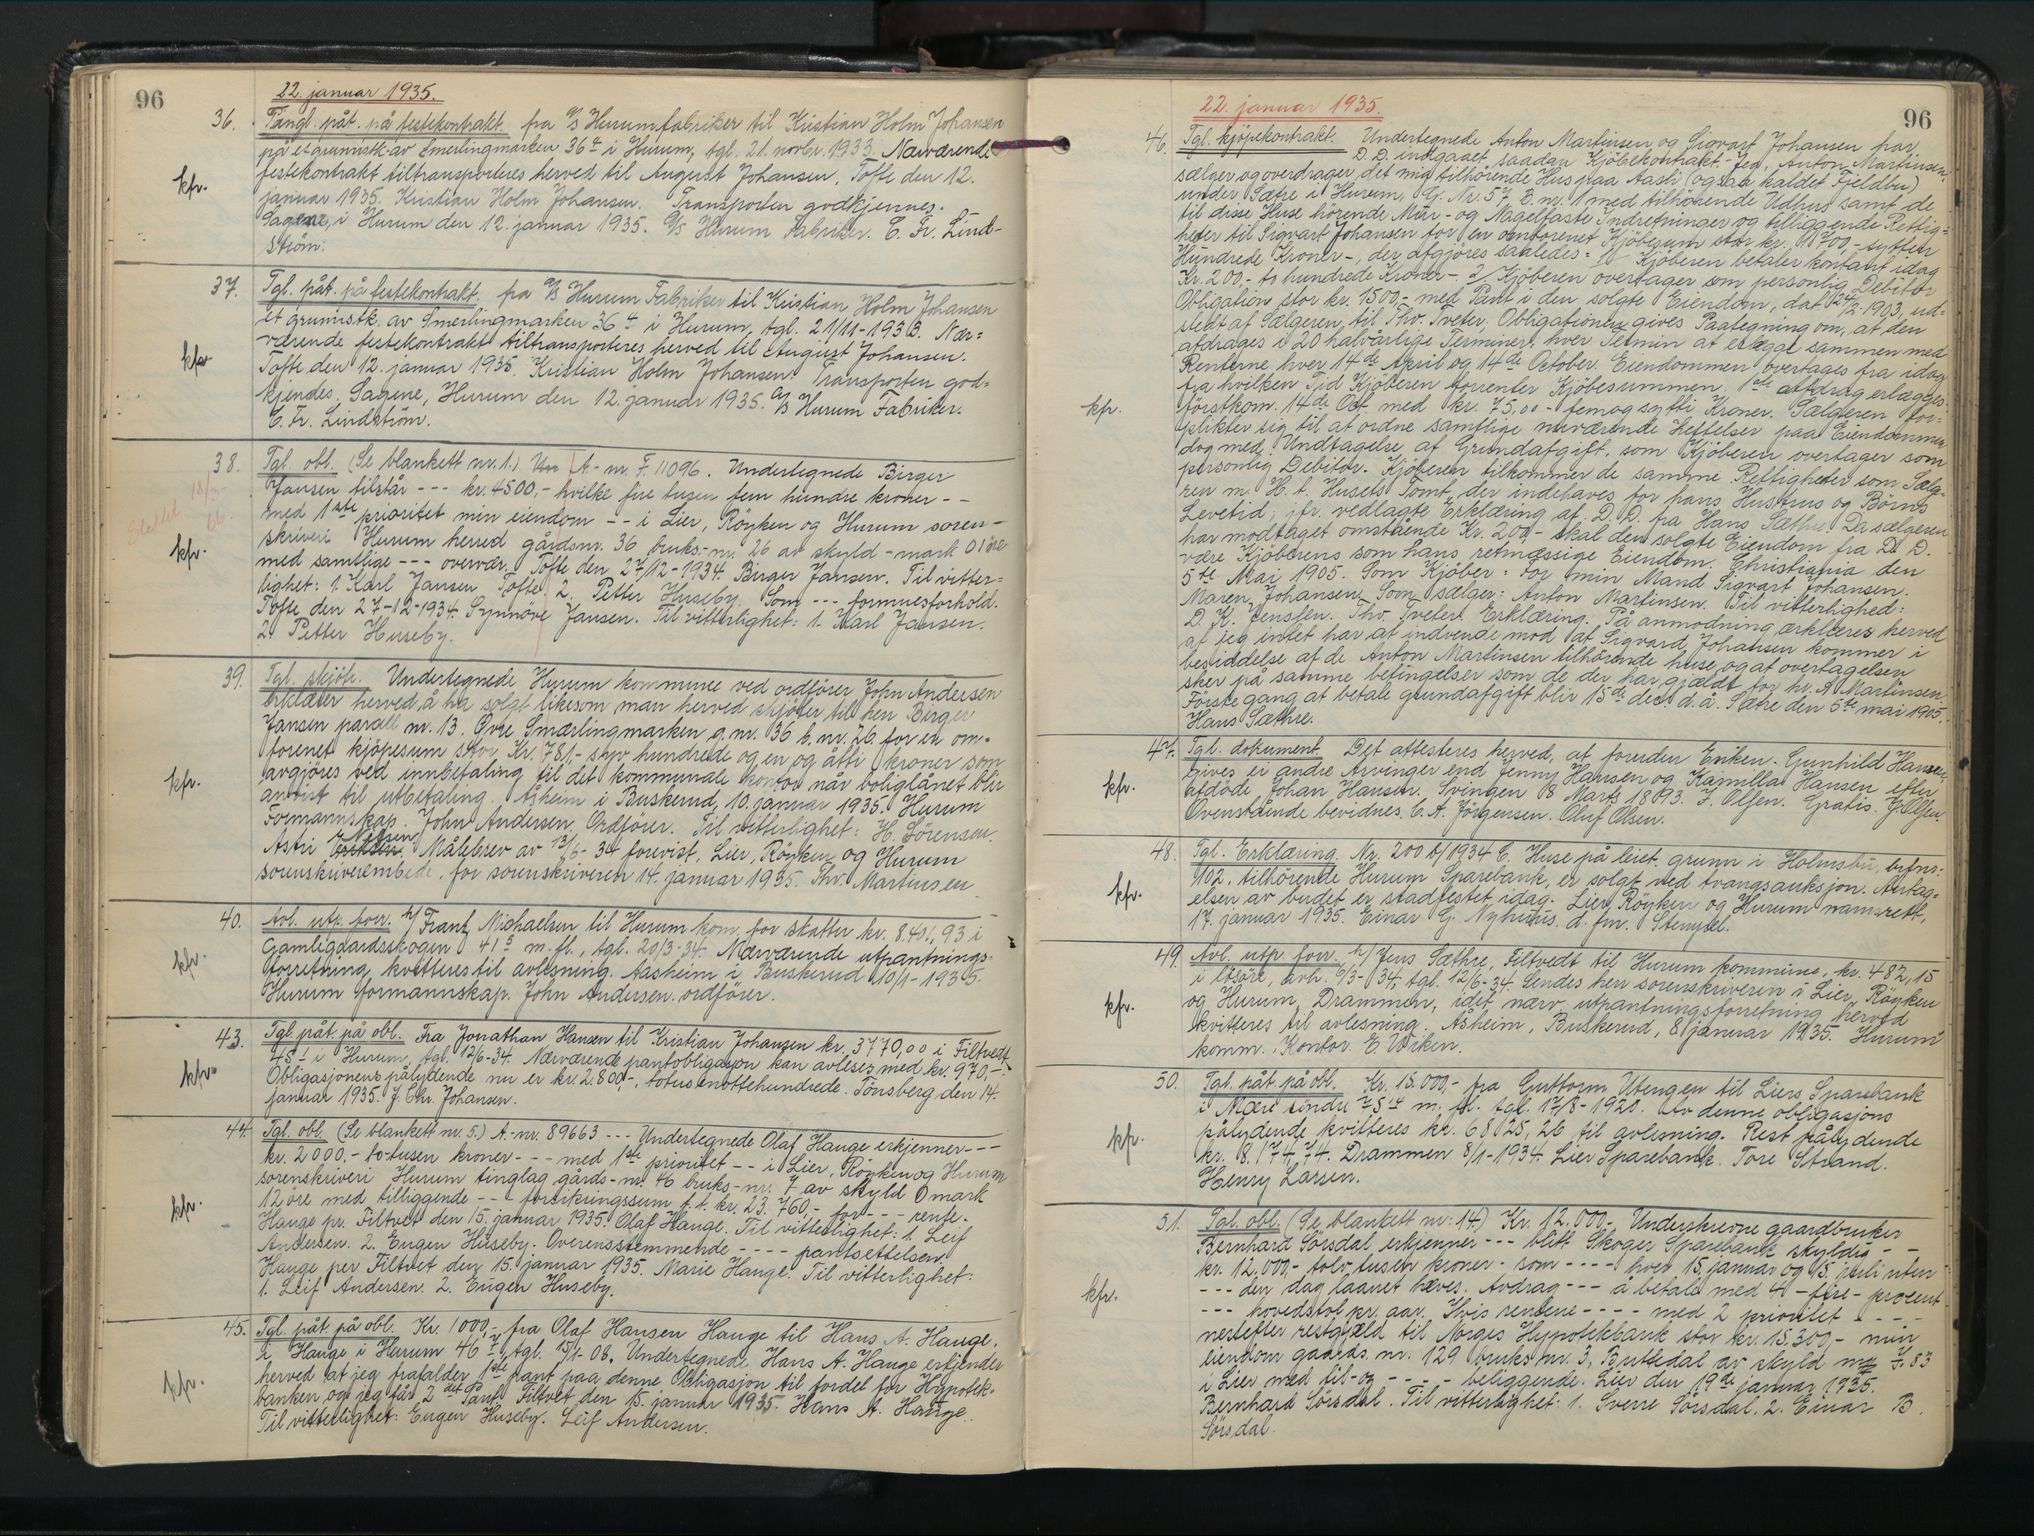 96
22. januar 1935.
36. Tangl. påt. på festekontrakt. fra A/S Hurumfabriker til Kristian Holm Johansen
på et grunnstk. av Smerlingmarken 36 4 i Hurum, tgl. 21. novbr. 1933. Nærværende
festekontrakt tiltransporteres herved til August Johansen. Tofte den 12.
kfr.
januar 1935. Kristian Holm Johansen. Transporten godkjennes.
Sagene, i Hurum den 12. januar 1935. A/S Hurum Fabriker. C. Fr. Lind-
strøm.
37. Tgl. påt. på festekontrakt. fra A/S Hurum Fabriker til Kristian Holm Johansen
et grunnstk. av Smerlingmarken 36 4 i Hurum, tgl. 21/11-1933. Nær-
værende festekontrakt tiltransporteres herved til August Johansen.
kfr
Tofte den 12. januar 1935. Kristian Holm Johansen. Transporten god-
kjendes, Sagene, Hurum den 12. januar 1935. A/S Hurum Fabriker.
C. Fr. Lindstrøm.
38. Tgl. obl. (Se blankett nr. 1.) A-nr. F. 11096. Undertegnede Birger
Jansen tilstår --- kr. 4500,- hvilke fire tusen fem hundre kroner --
Slettet 18/3-66.
med 1ste prioritet min eiendom -- i Lier, Røyken og Hurum soren-
skriveri Hurum herred gårdsnr. 36 bruks-nr. 26 av skyld - mark 01 øre
kfr.
med samtlige --- overvær. Tofte den 27/12-1934. Birger Jansen. Til vitter-
lighet: 1. Karl Jansen Tofte 2. Petter Huseby. Som --- formuesforhold.
Tofte den 27-12-1934. Synnöve Jansen. Til vitterlighet: 1. Karl Jansen.
2. Petter Huseby.
39. Tgl. skjöte. Undertegnede Hurum kommune ved ordfører John Andersen
erklærer herved å ha solgt likesom man herved skjøter til herr Birger
Jansen parsell nr. 13. Øvre Smærlingmarken g.nr. 36 b.nr. 26 for en om-
forenet kjöpesum stor Kr. 781,- syv hundrede og en og åtti kroner som
kfr.
avgjöres ved innbetaling til det kommunale kontor når boliglånet blir
anvist til utbetaling. Åsheim i Buskerud, 10. januar 1935. Hurum
Formannskap. John Andersen. Ordförer. Til vitterlighet: H. Sörensen.
Nilsen
Astri Målebrev av 13/6-34 forevist. Lier, Röyken og Hurum
sorenskriverembede. for sorenskriveren 14. januar 1935. Thv. Martinsen
40. Avl. utp. forr. h/Frantz Michaelsen til Hurum kom. for skatter kr. 8.401,93 i
Gamligaardsskogen 41 5 m.fl., tgl. 20/3-34. Nærværende utpantnings-
kfr.
forretning kvitteres til avlesning. Aasheim i Buskerud 10/1-1935.
Hurum formannskap. John Andersen. ordförer.
43. Tgl. påt. på obl. Fra Jonathan Hansen til Kristian Johansen kr. 3770,00 i Filtvedt
45 1 i Hurum, tgl. 12/6-34. Nærværende pantobligasjon kan avleses med kr. 970,-.
kfr.
Obligasjonens pålydende nu er kr. 2.800,-, totusenottehundrede. Tönsberg den 14.
januar 1935. J. Chr. Johansen.
44. Tgl. obl. (Se blankett nr. 5.) A.-nr. 89663 --- Undertegnede Olaf Hauge erkjenner---
kr. 2000,- to tusen kroner --- med 1ste prioritet -- i Lier, Röyken og Hurum
sorenskriveri Hurum tinglag gårds-nr. 46 bruks-nr. 7 av skyld 0 mark
kfr.
12 öre med tilliggende --- forsikringssum f.t. kr. 23.760,- for --- rente.
Hauge pr. Filtvet den 15. januar 1935. Olaf Hauge. Til vitterlighet: 1. Leif
Andersen. 2. Eugen Huseby. Overensstemmende ---- pantsettelsen.
Hauge per Filtvet den 15. januar 1935. Marie Hauge. Til vitterlighet:
1. Leif Andersen. 2. Eugen Huseby.
45. Tgl. påt. på obl. Kr. 1000,- fra Olaf Hansen Hauge til Hans A. Hauge.
i Hauge i Hurum 46 7, tgl. 15/1-08. Undertegnede Hans A. Hauge erkjender
kfr.
herved at jeg frafalder 1ste pant paa denne Obligasjon til fordel for Hypotek-
banken og jeg får 2det Pant. Filtvet den 15. januar 1935. Hans A. Hauge.
Til vitterlighet: Eugen Huseby. Leif Andersen.
96
22. januar 1935
46. Tgl. kjöpekontrakt. Undertegnede Anton Martinsen og Sigvart Johansen har
D.D. indgaaet saadan Kjöbekontrakt:- Jeg, Anton Martinsen
sælger og overdrager det mig tilhörende Hus paa Aasti (ogsaa kaldet Fjeldbu)
under Sætre i Hurum, G. Nr. 57 B. nr. 1 med tilhörende Udhus samt de
til disse Huse hörende Mur- og Nagelfaste Indretninger og tilliggende Rettig-
heder til Sigvart Johansen for en omforenet Kjöbesum stor kr. 1700,- sytten
Hundrede Kroner-, der afgjöres saaledes:- 1/ Kjöberen betaler kontant idag
Kr. 200,- to hundrede Kroner- 2/ Kjöberen overtager som personlig Debitor
Obligation stor kr. 1500,- med Pant i den solgte Eiendom, dat. 24/2 1903, ud-
stedt af Sælgeren til Thv. Tveter. Obligationen gives Paategning om, at den
afdrages i 20 halvårlige Terminer, hver Termin at erlægge sammen med
Renterne hver 14de April og 14de October. Eiendommen overtages fra idag
fra hvilken Tid Kjöberen forrenter Kjöbesummen. 1ste afdrag erlægges
kfr.
förstkom. 14de Oct. med kr. 75,00 - femogsytti Kroner. Sælgeren for-
plikter sig til at ordne samtlige nuværende Heftelser paa Eiendommen
dog med Undtagelse af Grundafgift, som Kjöberen overtager som
personlig Debitor. Kjöberen tilkommer de samme Rettigheder som Sælg-
ren m. H. t. Husets Tomt, der indehaves for hans Hustrus og Börns
Levetid, jfr. vedlagte Erklæring af D. D. fra Hans Sæthre. Da sælgeren
har modtaget omstående Kr. 200,- skal den solgte Eiendom fra D. D.
være Kjöberens som hans retmæssige Eiendom. Christiania den
5te Mai 1905. Som Kjöber: For min Mand Sigvart Johansen.
Maren Johansen. Som sælger: Anton Martinsen. Til vitterlighed:
D. K. Jenssen. Thv. Tveter. Erklæring. På anmodning erklæres herved
at jeg intet har at indvende mod at Sigvard Johansen kommer i
besiddelse af de Anton Martinsen tilhörende huse, og at overtagelsen
sker på samme befingelser som de der har gjældt for hr. A. Martinsen.
Förste gang at betale grundafgift blir 15de dec. d.å. Sætre den 5te mai 1905.
Hans Sæthre.
47. Tgl. dokument. Det attesteres herved, at foruden Enken, Gunhild Hansen,
gives ei andre Arvinger end Jenny Hansen og Kamilla Hansen efter
kfr.
afdöde Johan Hansen. Svingen 8 Marts 1893. J. Olsen. Gratis. J. Olsen.
Ovenstående bevidnes. C. A. Jörgensen. Oluf Olsen.
48. Tgl. Erklæring. Nr. 200 b/1934 C. Huse på leiet grunn i Holmsbu, brfnr.
102. tilhörende Hurum Sparebank, er solgt ved tvangsauksjon. Antag-
kfr.
elsen av budet er stadfestet idag. Lier, Röyken og Hurum namsrett,
17. januar 1935. Einar G. Nyhuus. d. fm. Stempel.
49. Avl. utp. forr. h/Jens Sæthre, Filtvedt til Hurum kommune, kr. 482,15
i lösöre, avh. 6/3-34, tgl. 12/6-34. Sendes herr sorenskriveren i Lier, Röyken
kfr.
og Hurum, Drammen, idet nærv. utpantningsforretning herved
kvitteres til avlesning. Åsheim, Buskerud, 8 januar 1935. Hurum
komm. Kontor. E. Wiken.
50. Tgl. påt. på obl. Kr. 15.000,- fra Guttorm Utengen til Liers Sparebank
i Mære söndre 75 14 m. fl. tgl. 17/8-1928. Av denne obligasjons
kfr.
pålydende kvitteres kr. 6825,26 til avlesning. Rest pålydende
kr. 8.174,74. Drammen 8/1-1934. Lier Sparebank. Tore Strand.
Henry Larsen.
51. Tgl. obl. (Se blankett nr: 14.) Kr. 12.000,- Underskrevne gaardbruker
Bernhard Sörsdal erkjenner --- blitt Skoger Sparebank skyldig --
kr. 12.000,- tolv tusen kroner - som ---- hver 15. januar og 15. juli uten
--- den dag laanet hæves. Avdrag --- å betale med 4 - fire - procent
kfr.
--- hovedstol pr. aar. Hvis rentene ---- med 2 prioritet ----
nestefter restgjæld til Norges Hypotekbank stor kr. 15.300,- min
eiendom gaards. nr. 129 bruks nr. 3, Buttedal av skyld mk 7.83
i Lier med til-og ---- beliggende. Lier den 19de januar 1935.
Bernhard Sörsdal. Til vitterlighet: 1. Sverre Sörsdal. 2. Einar B.
Sörsdal.